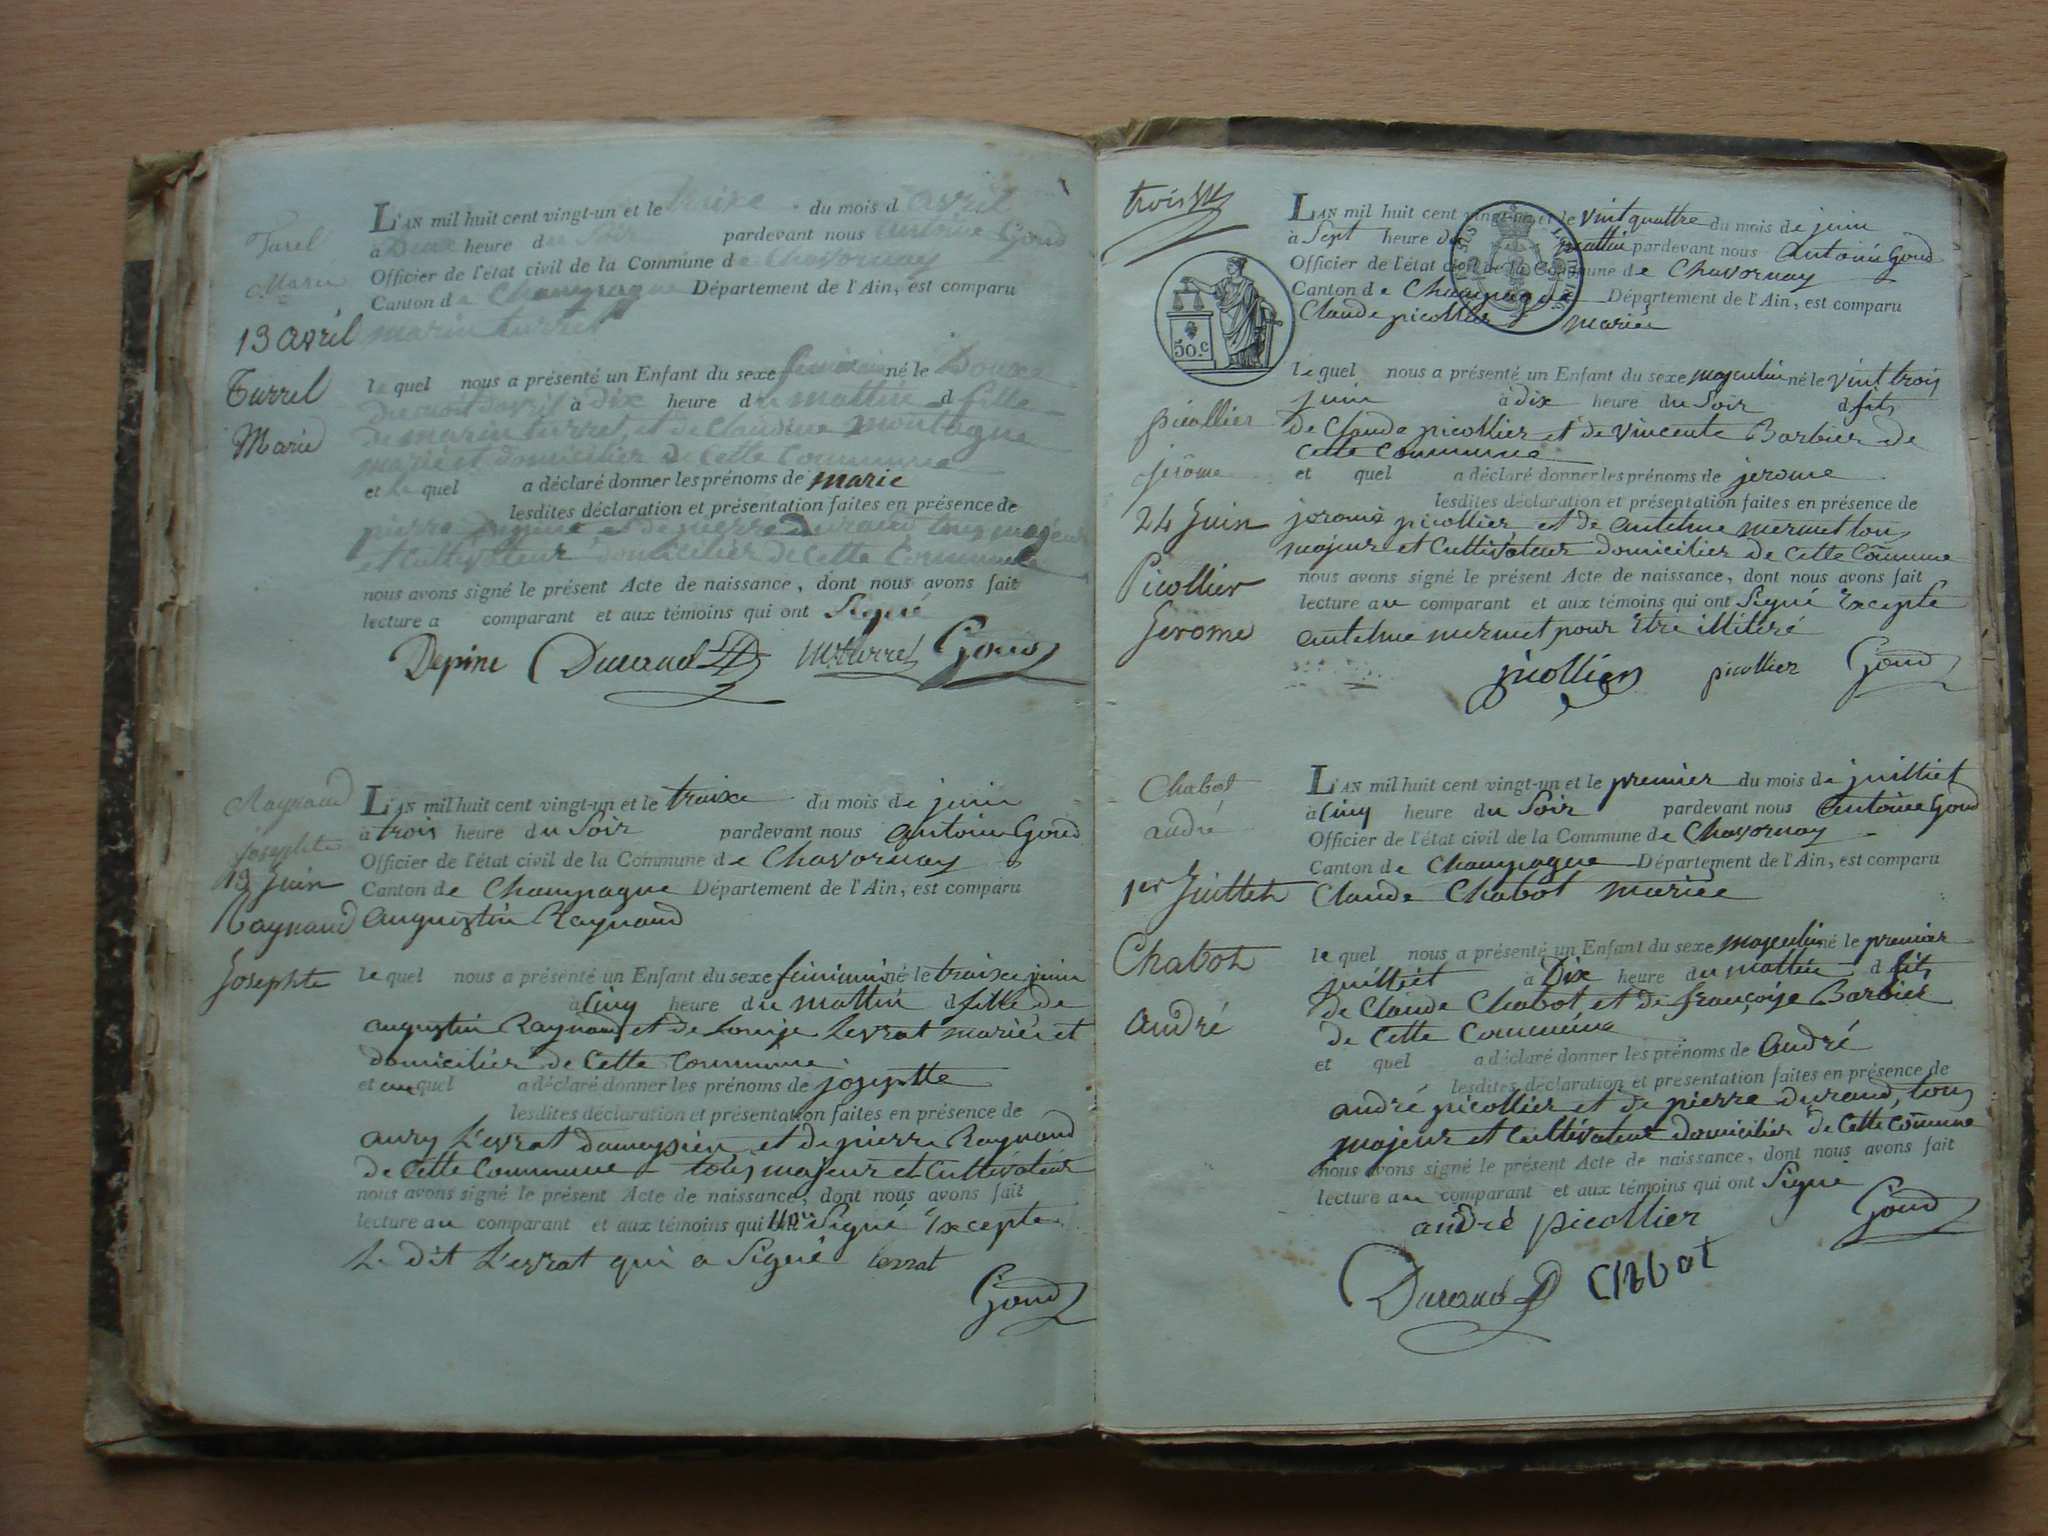 Turel
Marie
13 avril
Turrel
Marie
L'AN mil huit cent vingt-un et le treixe du mois d avril
à Deux heure du Soir pardevant nous antoine Goud
Officier de l'état civil de la Commune de Chavornay
Canton de Champagne Département de l'Ain, est comparu
marin turrel
le quel nous a présenté un Enfant du sexe feminin né le Douxe
Du mois d'avril à dix heure du mattin d fille
De marin turrel, et de Claudine montagne
marié et domicilier de Cette Commune
et le quel a déclaré donner les prénoms de marie
lesdites déclaration et présentation faites en présence de
pierre Depine et de pierre Durand tous majeur
et Cultivateur domicilier de Cette Commune
nous avons signé le présent Acte de naissance, dont nous avons fait
lecture a comparant et aux témoins qui ont Signé
Depine Durand M. turrel Goud
Raynaud
josephte
13 Juin
Raynaud
Josephte
L'AN mil huit cent vingt-un et le treixe du mois de juin
à trois heure du Soir pardevant nous antoine Goud
Officier de l'état civil de la Commune de Chavornay
Canton de Champagne Département de l'Ain, est comparu
augustin Raynaud
le quel nous a présenté un Enfant du sexe feminin né le treixe juin
à Cinq heure du mattin d fille de
augustin Raynaud et de Louise Levrat mariér et
domicilier de Cette Commune
et quel a déclaré donner les prénoms de josephte
lesdites déclaration et présentation faites en présence de
aury Levrat et de pierre Raynaud
de Cette Commune tous majeur et Cultivateur
nous avons signé le présent Acte de naissance, dont nous avons fait
lecture au comparant et aux témoins qui Signé Excepte
Le dit Levrat qui a Signé levrat
Goud
trois
50.C
picollier
jérôme
24 Juin
Picollier
Jerome
L'AN mil huit cent vingt-un et le vint quattre du mois de juin
à Sept heure du mattin pardevant nous antoine Goud
Officier de l'état civil de la Commune de Chavornay
Canton de Champagne Département de l'Ain, est comparu
Claude picollier mariér
le quel nous a présenté un Enfant du sexe masculin né le vint trois
juin à dix heure du Soir d fils
de Claude picollier et de vincente Barbier de
Cette Commune
et quel a déclaré donner les prénoms de jerome
lesdites déclaration et présentation faites en présence de
jerome picollier et de antelme mermet tous
majeur et Cultivateur domicilier de Cette Commune
nous avons signé le présent Acte de naissance, dont nous avons fait
lecture au comparant et aux témoins qui ont Signé Excepte
antelme mermet pour Etre illiteré
picollier picollier Goud
Chabot
andré
1er Juillet
Chabot
André
L'AN mil huit cent vingt-un et le premier du mois de juilliet
à Cinq heure du Soir pardevant nous antoine Goud
Officier de l'état civil de la Commune de Chavornay
Canton de Champagne Département de l'Ain, est comparu
Claude Chabot mariée
le quel nous a présenté un Enfant du sexe masculin né le premier
juilliet à Dix heure du mattin d fils
de Claude Chabot et de françoise Barbier
de Cette Commune
et quel a déclaré donner les prénoms de André
lesdites déclaration et présentation faites en présence de
andré picollier et de pierre durand, tous
majeur et Cultivateur domicilier de Cette Commune
nous avons signé le présent Acte de naissance, dont nous avons fait
lecture au comparant et aux témoins qui ont Signé
andré picollier Goud
Durand Chabot